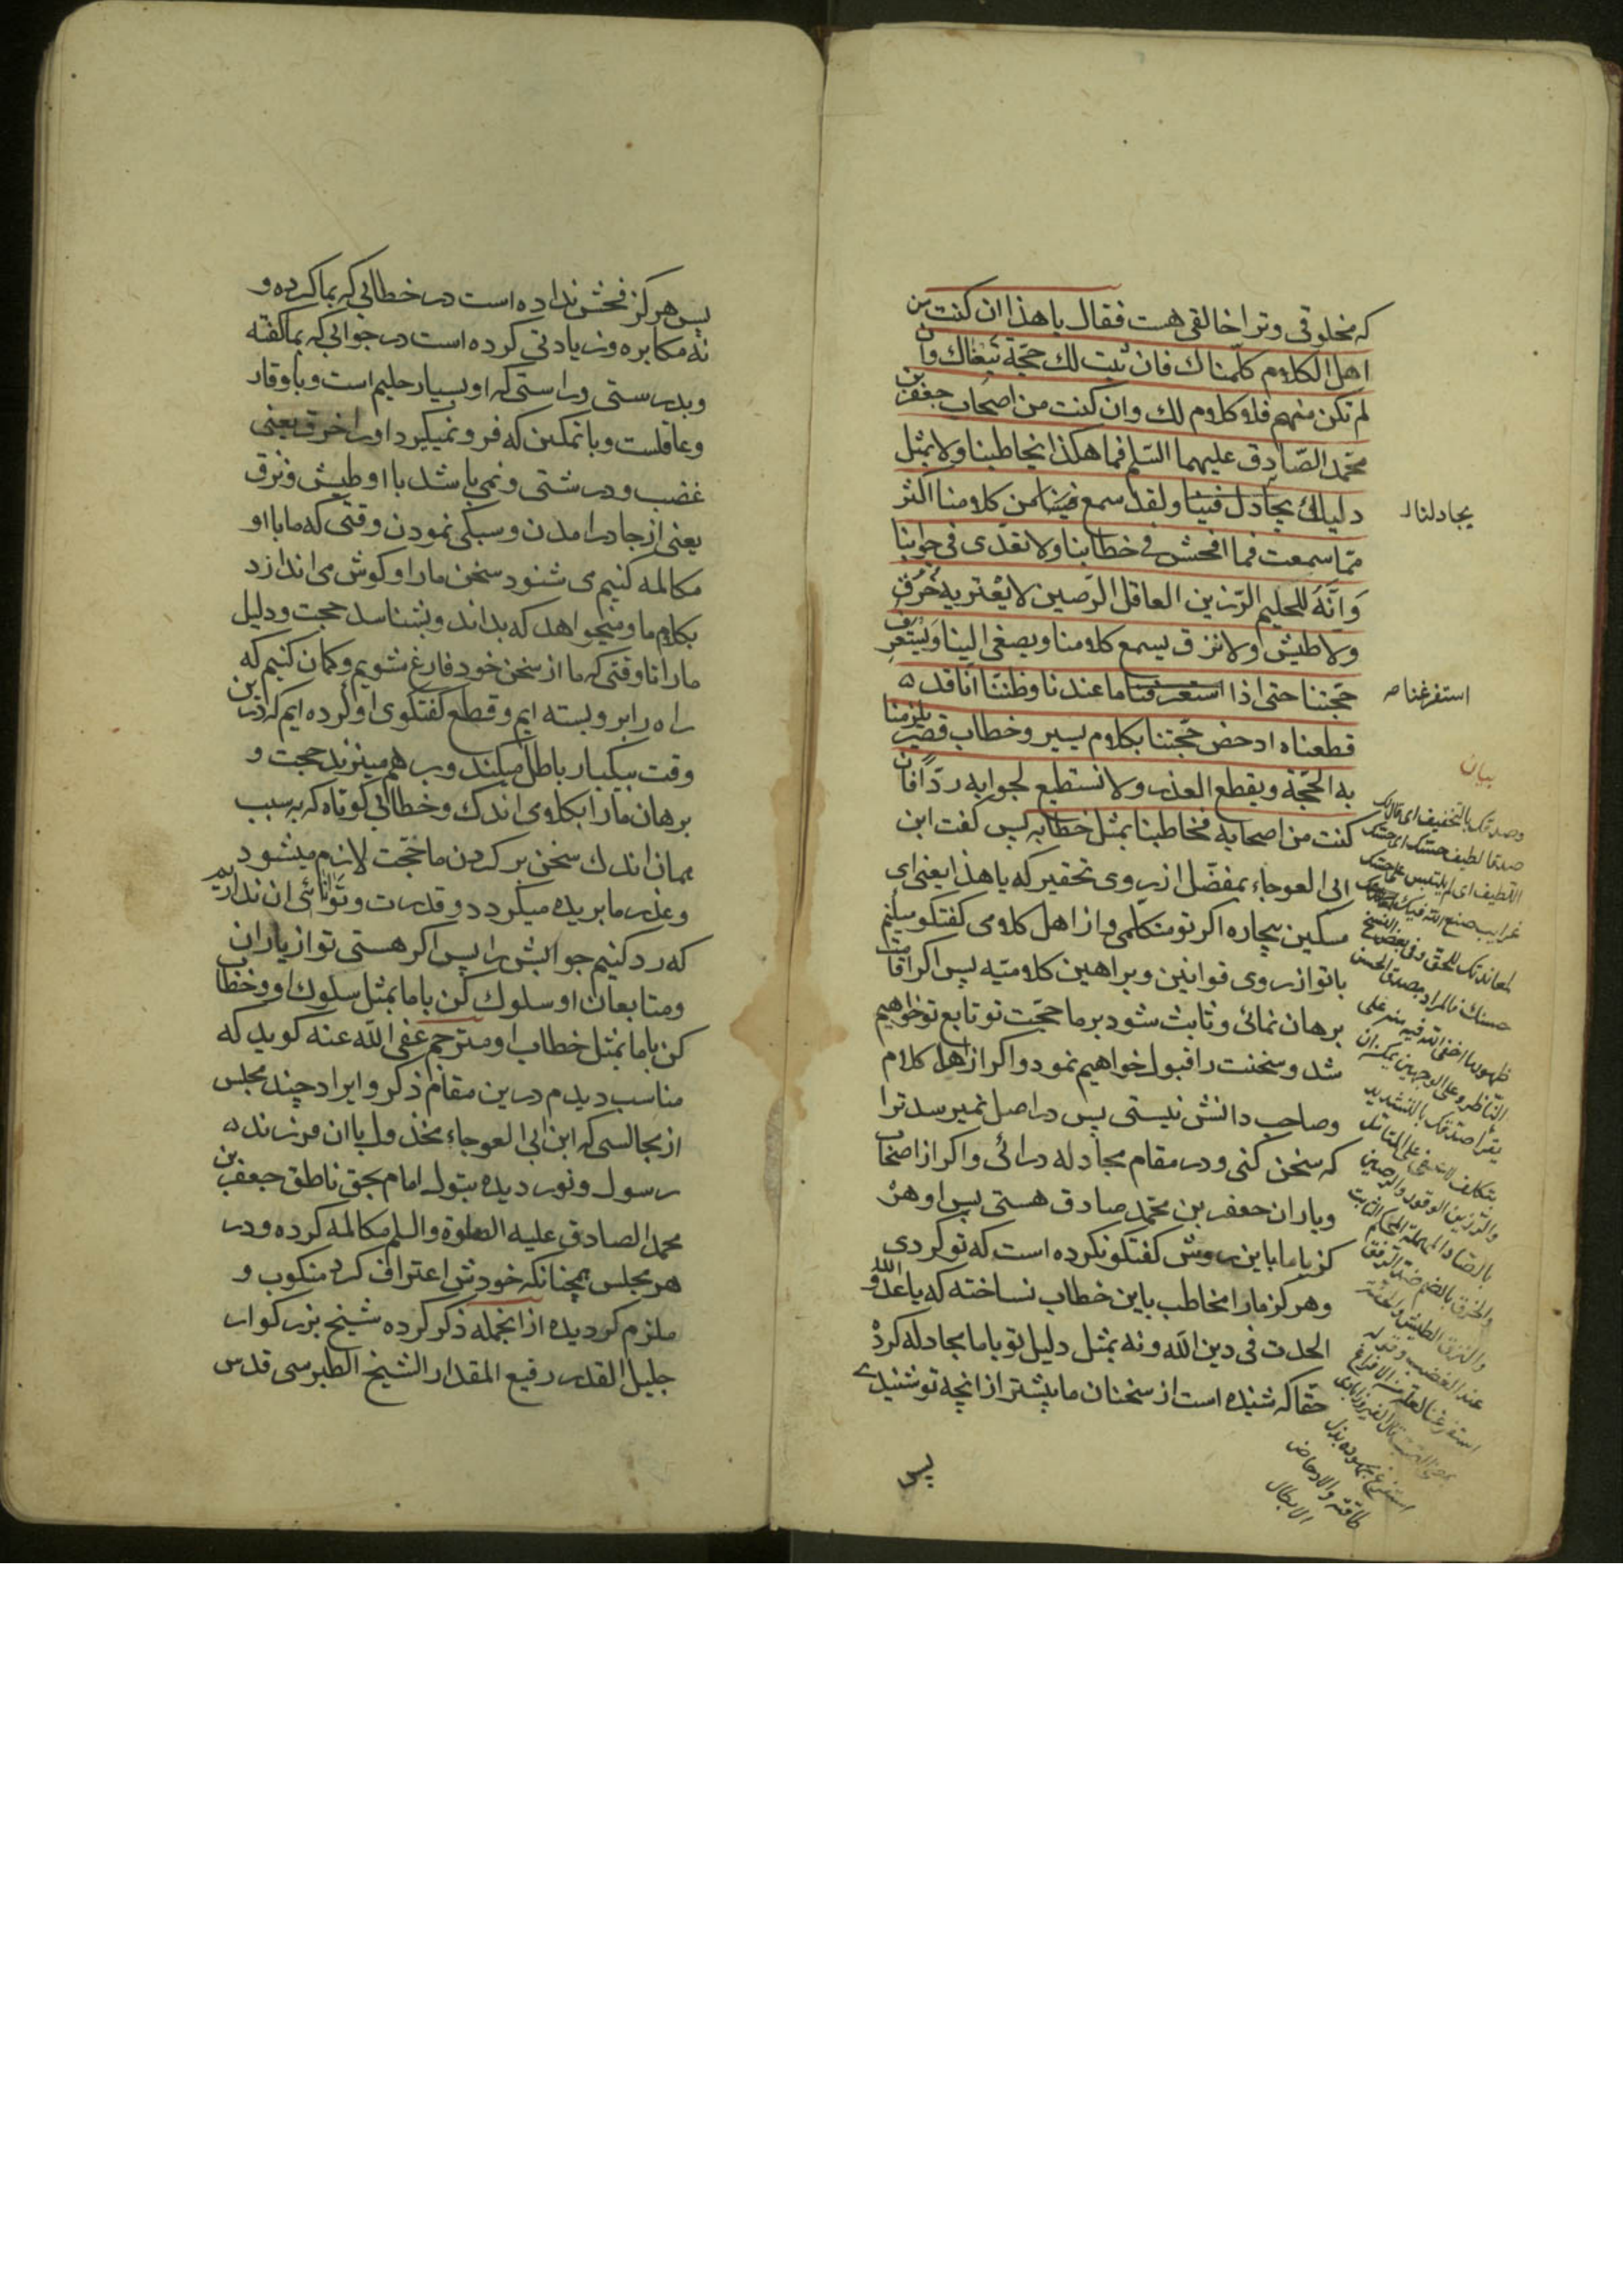 که مخلوقی و ترا خالقی هست فقال یا هذا ان کنت من
اهل الکلام کلمناک فان ثبت لک حجّة تبعناک وان
لم تکن منهم فلا کلام لک وان کنت من اصحاب جعفر بن
محمّد الصّادق علیهما السّلم فما هکذا یخاطبنا ولا بمثل
دلیلک یجادل فینا ولقد سمع من کلامنا اکثر
یجادلنا
ممّا سمعت فما افحش فی خطابنا ولا تعدّی فی جوابنا
وَاِنَّهُ للحلیم الرّزین العاقل الرّصین لا یعتریه خُرقٌ
ولا طیش ولا نزق یسمع کلامنا ویصغی الینا ویستعرف
حجّتنا حتی اذا استعرفنا ما عندنا وظننّا انّا قد
استفرغنا
قطعناه ادحض حجّتنا بکلام یسیر وخطاب قصیر یلزمنا
به الحجّة ویقطع العذر ولا نستطیع لجوابه ردّاً فان
کنت من اصحابه فخاطبنا بمثل خطابه پس کفت ابن
ابی العوجاء بمفضّل از روی تحقیر که یا هذا یعنی ای
مسکین بیچاره اکر تو متکلّمی و از اهل کلامی کفتکو میکنیم
با تو از روی قوانین و براهین کلامیّه پس اکر اقامت
برهان نمائی و ثابت شود بر ما حجّت تو تابع تو خواهیم
شد و سخنت را قبول خواهیم نمود و اکر از اهل کلام
وصاحب دانش نیستی پس در اصل نمیرسد ترا
که سخن کنی و در مقام مجادله درائی و اکر از اصحاب
ویاران جعفر بن محمّد صادق هستی پس او هر
کز با ما باین روش کفتکو نکرده است که تو کردی
وهرکز ما را مخاطب باین خطاب نساخته که یا عدوّ الله
الحدت فی دین الله و نه بمثل دلیل تو با ما مجادله کرده
حقا که شنیده است از سخنان ما بیشتر از انچه تو شنیدی
پس
بیان
وصدقک بالتخفیف ای قال لک
صدقا لطیف حسّک ای حسّک
اللطیف ای لم یلتبس علی حسّک
غرایب صنع الله فیک
لمعاندتک للحق وفی بعض النسخ
حسنک فالمراد بصدق الحسن
ظهور ما اخفی الله فیه منه علی
النّاظر وعلی الوجهین یمکن ان
یقرأ صدّقک بالتشدید
بتکلف لا یخفی علی المتامّل
والرّزین الوقور والرصین
بالصّاد المهملة المحکم الثابت
والخرق بالضم ضد الرفق
والنزق الطیش والخفّة
عند الغضب وقوله
استفرغنا لعلّه من الافراغ
بمعنی الصبّ قال الفیروزابادی
استفرغ مجهوده بذل
طاقته والادحاض
الابطال
پس هرکز فحش نداده است در خطابی که بما کرده و
نه مکابره و زیادتی کرده است در جوابی که بما کفته
وبدرستی و راستی که او بسیار حلیم است و باوقار
وعاقلست و باتمکین که فرو نمیکیرد او را خرق یعنی
غضب و درشتی و نمی باشد با او طیش و نزق
یعنی از جا درامدن و سبکی نمودن وقتی که ما با او
مکالمه کنیم می شنود سخن ما را و کوش می اندازد
بکلام ما و میخواهد که بداند و بشناسد حجت و دلیل
ما را تا وقتی که ما از سخن خود فارغ شویم و کمان کنیم که
راه را بر او بسته ایم و قطع کفتکوی او کرده ایم که درین
وقت بیکبار باطل میکند و بر هم میزند حجت و
برهان ما را بکلامی اندک و خطابی کوتاه که بسبب
همان اندک سخن بر کردن ما حجّت لازم میشود
وعذر ما بریده میکردد و قدرت و توانائی ان نداریم
که رد کنیم جوابش را پس اکر هستی تو از یاران
ومتابعان او سلوک کن با ما بمثل سلوک او و خطاب
کن با ما بمثل خطاب او مترجم عفی الله عنه کوید که
مناسب دیدم درین مقام ذکر و ایراد چند مجلس
از مجالسی که ابن ابی العوجاء مخذول با ان فرزند
رسول و نور دیده بتول امام بحق ناطق جعفر بن
محمد الصادق علیه الصلوة والسلم مکالمه کرده و در
هر مجلس همچنانکه خودش اعتراف کرد منکوب و
ملزم کردیده از انجمله ذکر کرده شیخ بزرکوار
جلیل القدر رفیع المقدار الشیخ الطبرسی قدس